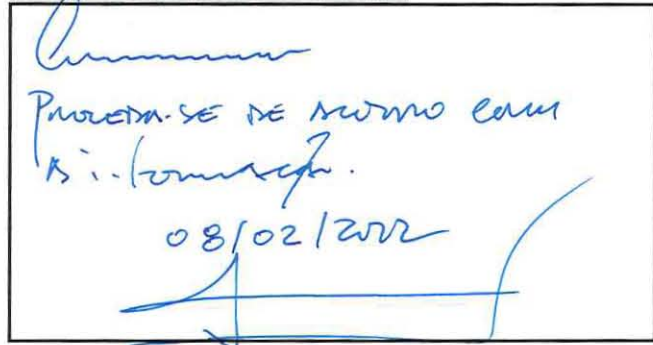 Proceda-se de acordo com
a informação.
08/02/2022